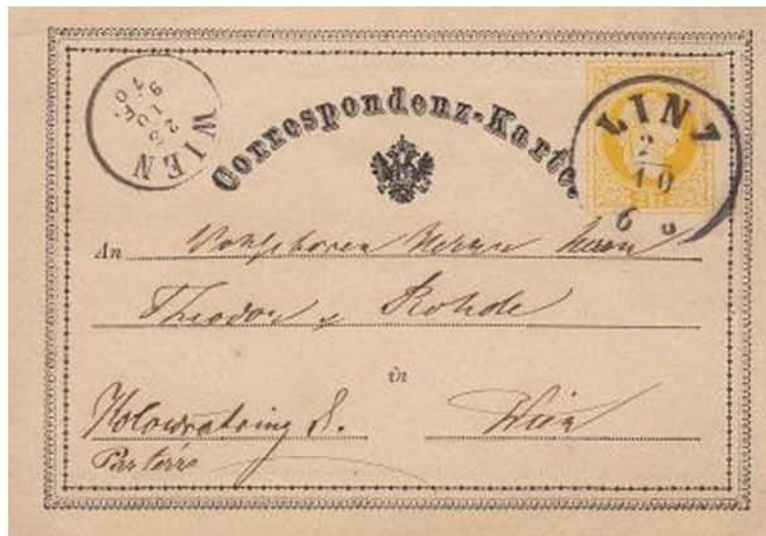 WIEN
2 10
Correspondenz-Karte
LINZ
2
10
6
An Wohlgeboren Herrn Herrn
Theodor v Rohde
in
Kolowratring 8. Wien
Parterre